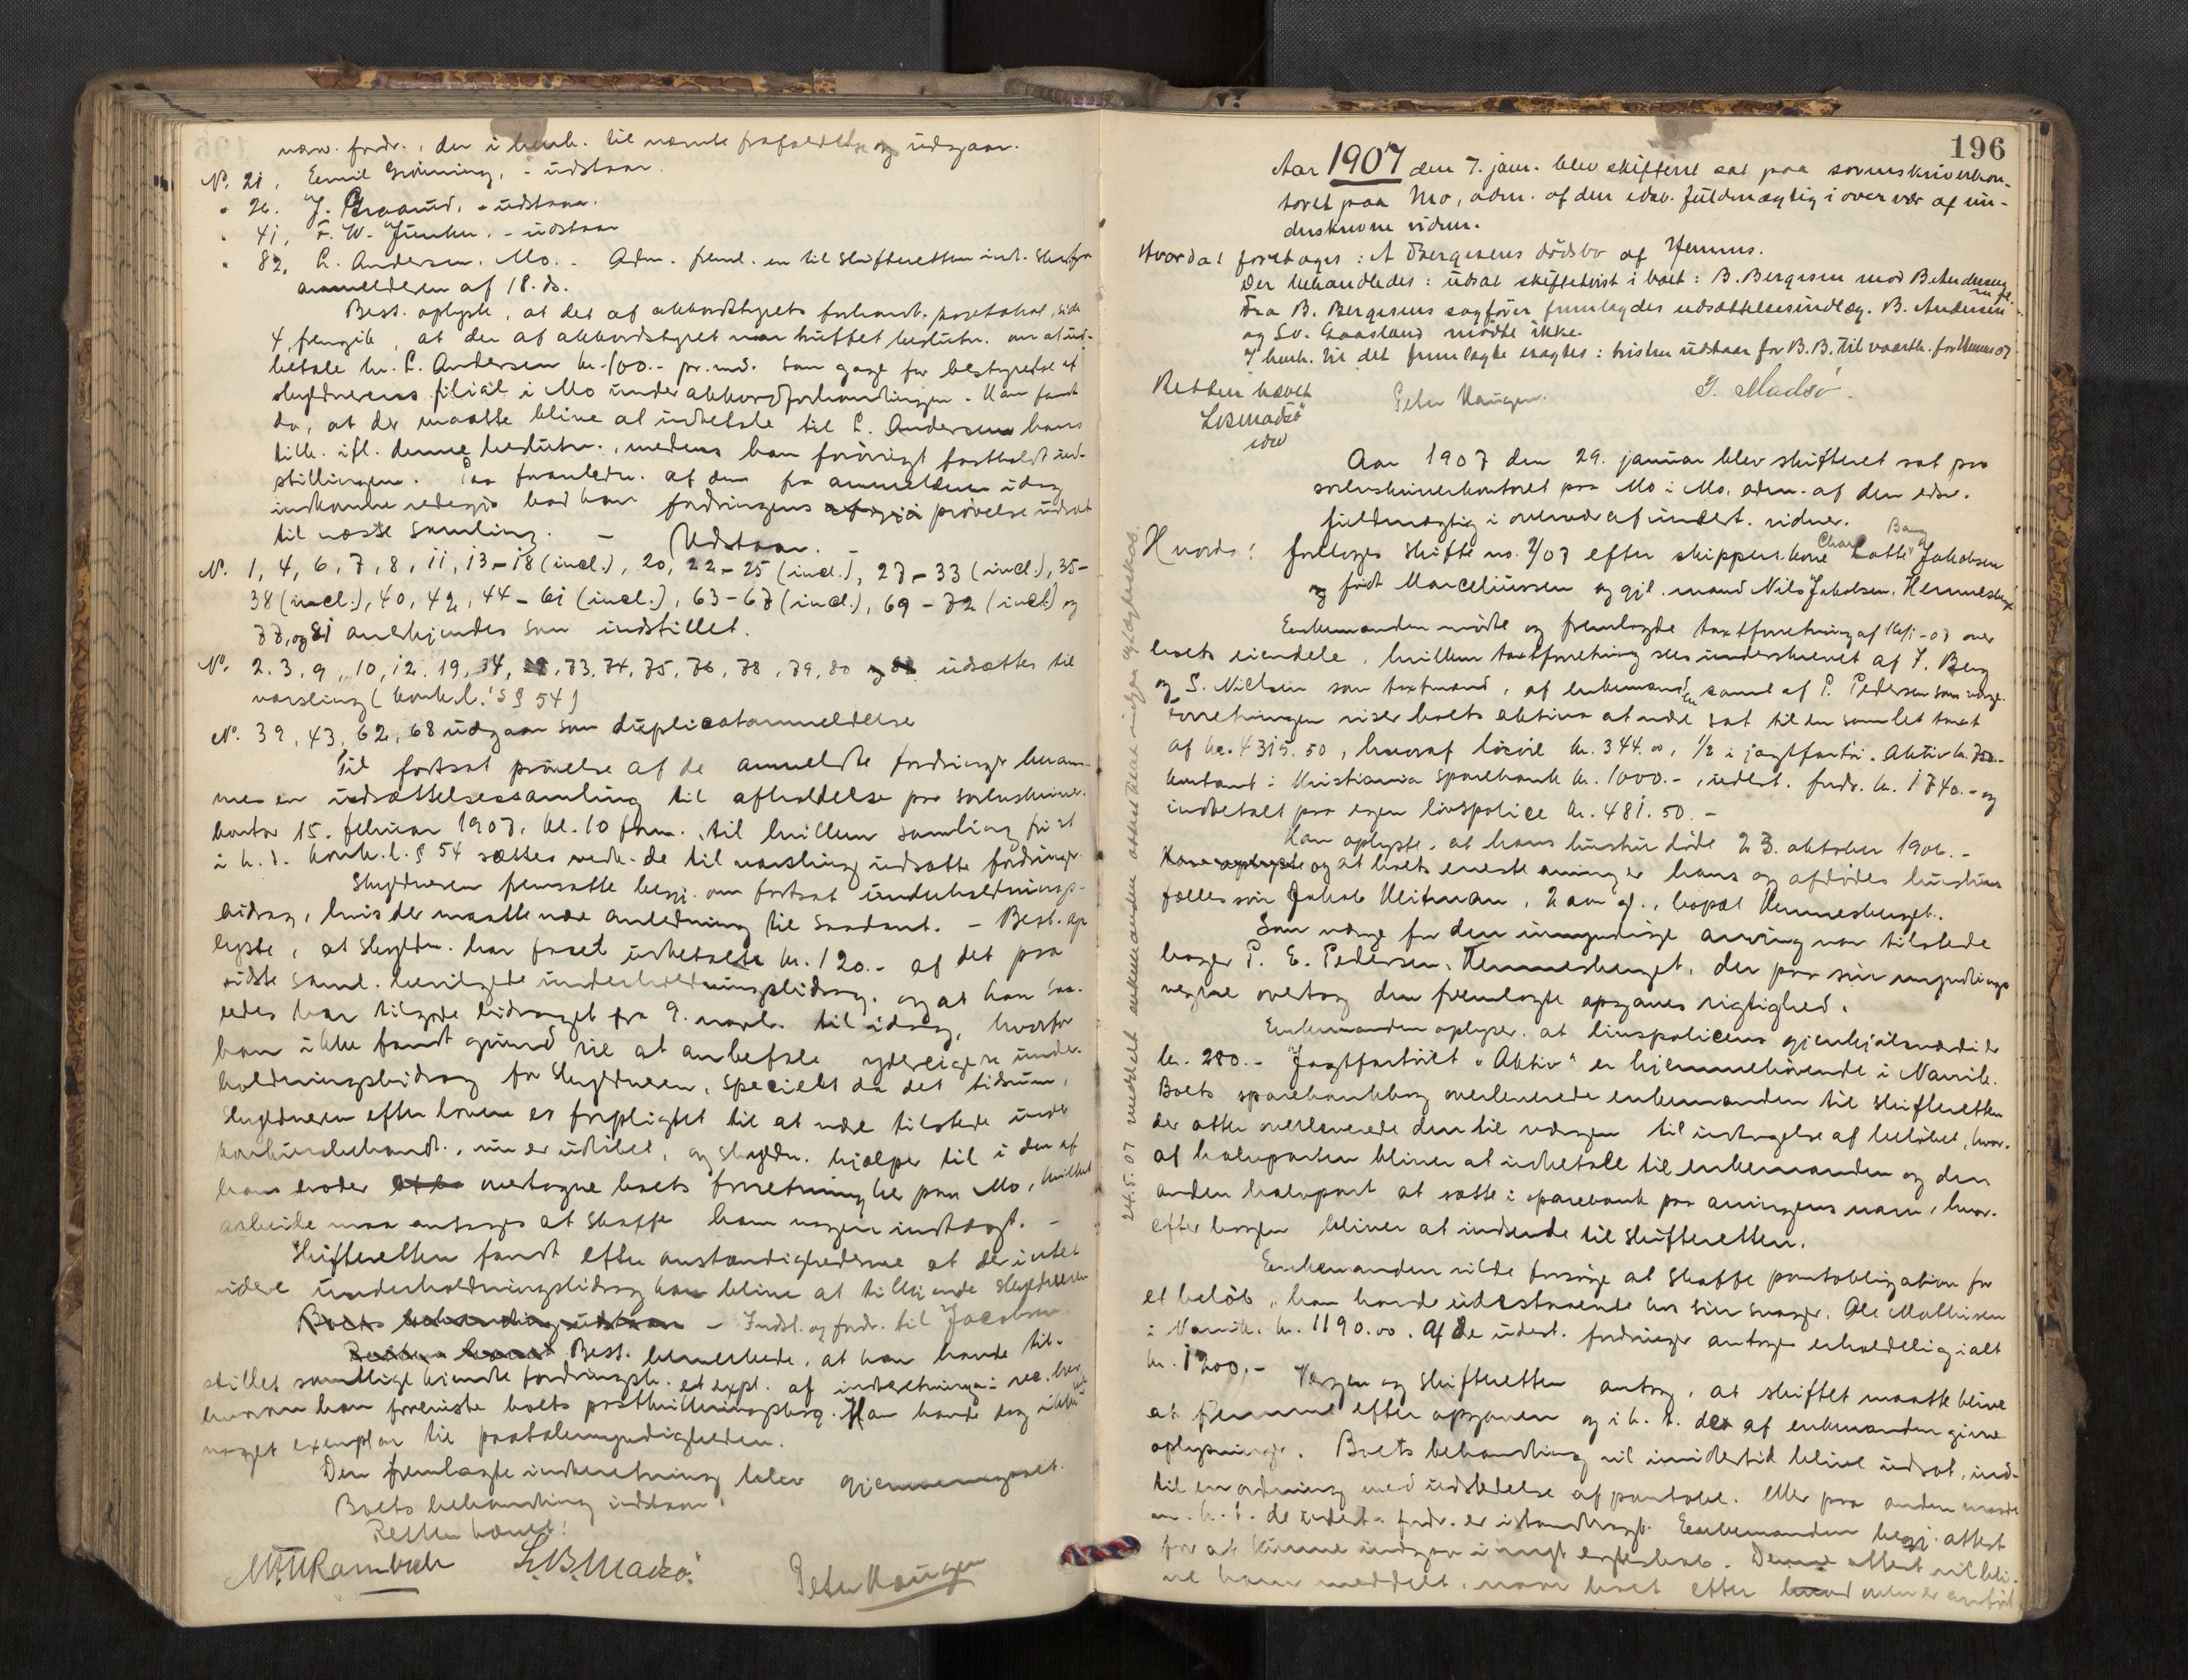 nærv. fordr., der i henh. til nævnte frafaldelse og udgaar.
No. 21, Eemil Grønning, - udstaar.
" 26. J. - udstaar.
" 41, F. W. - udstaar
" 82, C. Andersen. Mo. - Adm. freml. en til skifteretten indk. skr. fra
anmelderen af 18. ds.
Best. oplyste, at det af akkordstyrets forhandl. protokol, side
4, fremgik, at der af akkordstyret var truffet beslutn. om at ud-
betale hr. C. Andersen kr. 100.- pr. md. som gage for bestyrelse af
skyldnerens filial i Mo under akkordforhandlingen. Han fandt
da, at der maatte blive at udbetale til C. Andersen hans
tilk. ifl. denne beslutn., medens han forøvrigt fastholdt ind-
stillingen. Paa foranledn. af den fra anmelderen idag
indkomne bad han fordringens prøvelse udsat
til næste samling. - Udstaar. -
No. 1, 4, 6, 7, 8, 11, 13-18 (incl.), 20, 22-25 (incl.), 27-33 (incl.), 35-
38 (incl.), 40, 42, 44-61 (incl.), 63-67 (incl.), 69-72 (incl.) og
77, og 81 anerkjendes som indstillet.
No. 2. 3, 9, 10, 12, 19, 34, 73, 74, 75, 76, 78, 79, 80 udsættes til
varsling (konk.l.'s § 54)
No. 39, 43, 62, 68 udgaar som duplicatanmeldelse
Til fortsat prøvelse af de anmeldte fordringer beram-
mes en udsættelsessamling til afholdelse paa sorenskriver-
kontor 15. februar 1907, kl. 10 form., til hvilken samling frist
i h. t. konk.l. § 54 sættes vedk. de til varsling udsatte fordringer.
Skyldneren fremsatte begj. om fortsat underholdnings-
bidrag, hvis der maatte være anledning til saadant. - Best. op-
lyste, at skyldn. har faaet udbetalt kr. 120.- af det paa
sidste saml. bevilgede underholdningsbidrag, og at han saa-
ledes har tilgode bidraget fra 9. novb. til idag, hvorfor
han ikke fandt grund til at anbefale yderligere under-
holdningsbidrag for skyldneren, specielt da det tidsrum,
skyldneren efter loven er forpligtet til at være tilstede under
konkursbehandl., nu er udløbet, og skyldn. hjælper til i den af
hans broder overtagne boets forretning her paa Mo, hvilket
arbeide maa antages at skaffe ham nogen indtægt. -
Skifteretten fandt efter omstændighederne at der intet
videre underholdningsbidrag kan blive at tilkjende skyldneren
Boets behandling udstaar - Indst. og fordr. til Jacobsen
Retten hævet Best. bemerkede, at han havde til-
stillet samtlige kjendte fordringsh. et expl. af indberetningen i rec. brev,
hvorom han foreviste boets postkvitteringsbog. Han havde dog ikke
noget exemplar til paatalemyndigheden.
Den fremlagte indberetning blev gjennemgaaet.
Boets behandling udstaar.
Retten hævet!
L. B. Madsø.
Peter Haugen
196
Aar 1907 den 7. janr. blev skifteret sat paa sorenskriverkon-
toret paa Mo, adm. af den edsv. fuldmægtig i overvær af un-
derskrevne vidner.
Hvorda! foretoges: A Bergesens dødsbo af Hemnes.
Der behandledes: udsat skiftetvist i boet: B. Bergesen mod B. Andersen m. fl.
Fra B. Bergesens sagfører fremlagdes udsættelsesindlæg. B. Andersen
og Sv. Gaasland mødte ikke.
I henh. til det fremlagte eragtes: tvisten udstaar for B. B. til vaarth. for Hemnes 07.
Retten hævet
L B Madsø
edsv
Peter Haugen.
J. Madsø.
Aar 1907 den 29. januar blev skifteret sat paa
sorenskriverkontoret paa Mo i Mo, adm. af den edsv.
fuldmægtig i overvær af undert. vidner.
Hvorda! foretoges skifte no. 2/07 efter skipperkone Lotte Jakobsen
født Marceliussen og gjl. mand Nils Jakobsen, Hemnesberget
Enkemanden mødte og fremlagde taxtforretning af 16/1-07 over
boets eiendele, hvilken taxtforretning sees underskrevet af J. Berg
og S. Nielsen som taxtmænd, af enkemanden samt af P. Pedersen som værge.
Forretningen viser boets aktiva at være sat til en samlet taxt
af kr. 4315.50, hvoraf løsøre kr. 344.00, 1/2 i jagtfartøi. Aktiv kr. 750.-
kontant i Kristiania sparebank kr. 1000.-, udest. fordr. kr. 1740.- og
indbetalt paa egen livspolice kr. 481.50.-
Han oplyste, at hans hustru døde 23. oktober 1906.-
Han oplyste og at boets eneste arving er hans og afdødes hustrus
fælles søn Jakob Heitman, 2 aar gl., bopæl Hemnesberget.
Som værge for den umyndige arving var tilstede
bager P. E. Pedersen, Hemnesberget, der paa sin myndlings
vegne vedtog den fremlagte opgaves rigtighed.
Enkemanden oplyser, at livspolicens gjenkjøbsværdi er
kr. 280.- Jagtfartøiet "Aktiv" er hjemmehørende i Narvik.
Boets sparebankbog overleverede enkemanden til skifteretten
der atter overleverede den til værgen til indtagelse af beløbet, hvor-
af halvparten bliver at udbetale til enkemanden og den
anden halvpart at sætte i sparebank paa arvingens navn, hvor-
efter bogen bliver at indsende til skifteretten.
Enkemanden vilde forsøge at skaffe pantobligation for
et beløb, han havde udestaaende hos sin svoger, Ole Mathisen
i Narvik, kr. 1190.00. Af de udest. fordringer antages erholdelig ialt
kr. 1200,- Værgen og skifteretten antog, at skiftet maatte blive
at fremme efter opgaven og i h. t. de af enkemanden givne
oplysninger. Boets behandling vil imidlertid blive udsat, ind-
til en ordning med udstedelse af pantobl. eller paa anden maade
m. h. t. de udest. fordr. er istandbragt. Enkemanden begj. attest
for at kunne indgaa i nyt egteskab. Denne attest vil bli-
ve ham meddelt, naar boet efter hvad ovenfor er anført
24.5.07 meddelt enkemanden attest til at indgaa nyt egteskab.